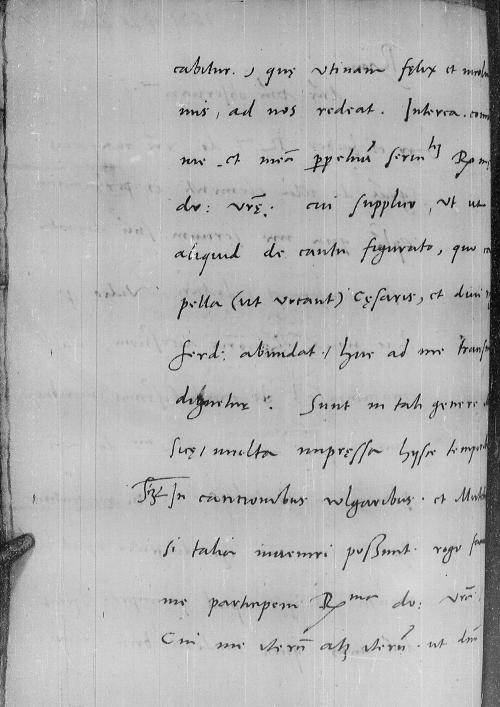 cabitur., quę utinam fęlix et incolu
mis, ad nos redeat. Interea. com
me et meā ꝑpetuū seruitꝫ R
do: vrę. cui supplico, ut ut
aliquid de cantu figurato, quo ca
pella (ut vocant) Cęsaris, et diui
Ferd: abundat, huc ad me trans
dignetur. Sunt in tali genere
sicę, multa impressa hysce tempo
In cantionibus vlgaribus. et
si talia inueniri possunt. rogo
me participem Rma do: vrā
Cui me iterū atqꝫ iterū. ut